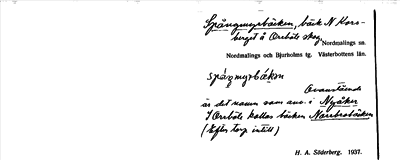 Sprängmyrbäcken, bäck N Kors-
berget å Orrböls skog.
Nordmalings sn.
Nordmalings och Bjurholms tg. Västerbottens län.
spräŋmyrbäkən
Ovanstående
är det namn som anv. i Nyåker
I Orrböls kallas bäcken
(Efter torp intill)
H. A. Söderberg. 1937.